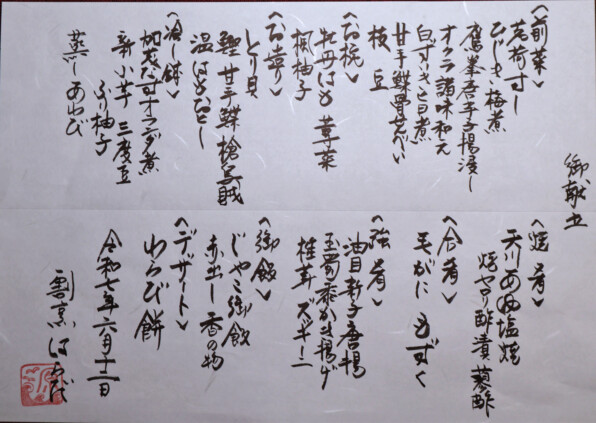 御献立
〈前菜〉
茗荷すし
ひじき梅煮
鷹峯唐辛子揚浸し
オクラ諸味和え
白ずいき白煮
甘手鰈骨せんべい
枝豆
〈お椀〉
牡丹はも 蓴菜
楓柚子
〈お造り〉
とり貝
鰹 甘手鰈 槍烏賊
温はもおとし
〈冷し鉢〉
加茂なすオランダ煮
新小芋 三度豆
ふり柚子
蒸しあわび
〈焼肴〉
天川あめ塩焼
焼ヤリ酢漬 蓼酢
〈合肴〉
毛がに もずく
〈強肴〉
油目新子唐揚
玉蜀黍かき揚げ
椎茸 ズッキーニ
〈御飯〉
じゃこ御飯
赤出し 香の物
〈デザート〉
わらび餅
令和七年六月十二日
割烹はらだ